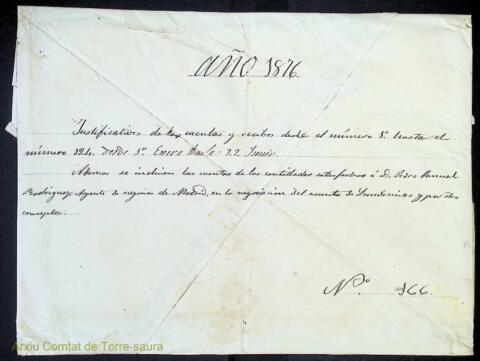 AÑO 1876.
Justificativos de las cuentas y recibos desde el número 1º hasta el
número 124. desde 1º Enero hasta 22 Junio.
Ademas se incluien las cuentas de las cantidades satisfechas á D. Pedro Manuel
Rodriguez Agente de negocios de Madrid, en la negociacion del asunto de y por otro
concepto.
Nº 166.
Arxiu Comtat de Torre-saura